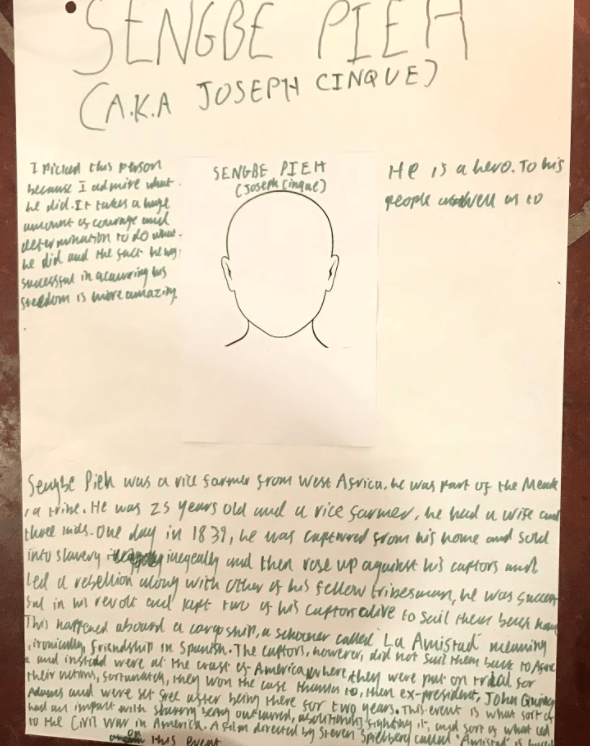 SENGBE PIEH
(A.K.A JOSEPH CINQUE)
I picked this person
because I admire what
he did. It takes a huge
amount of courage and
determination to do what
he did and the fact he was
successful in acquiring his
freedom is more amazing.
SENGBE PIEH
(Joseph Cinque)
He is a hero. To his
people as well as to
Sengbe Pieh was a rice farmer from West Africa. he was part of the Mende
tribe. He was 25 years old and a rice farmer, he had a wife and
three kids. One day in 1839, he was captured from his home and sold
into slavery illegally and then rose up against his captors and
led a rebellion along with other of his fellow tribesman, he was success
ful in his revolt and kept two of his captors alive to sail them back home
This happened aboard a cargo ship, a schooner called 'La Amistad' meaning
, ironically, friendship in Spanish. The captors, however, did not sail them back to
and instead were at the coast of America, where they were put on trial for
their actions, fortunately, they won the case thanks to, then ex-president, John Quincy
Adams and were set free after being there for two years. This event is what sort of
had an impact with slavery being outlawed, fighting it, and sort of what led
to the Civil War in America. A film directed by Steven Spielberg called 'Amistad' is
on this event